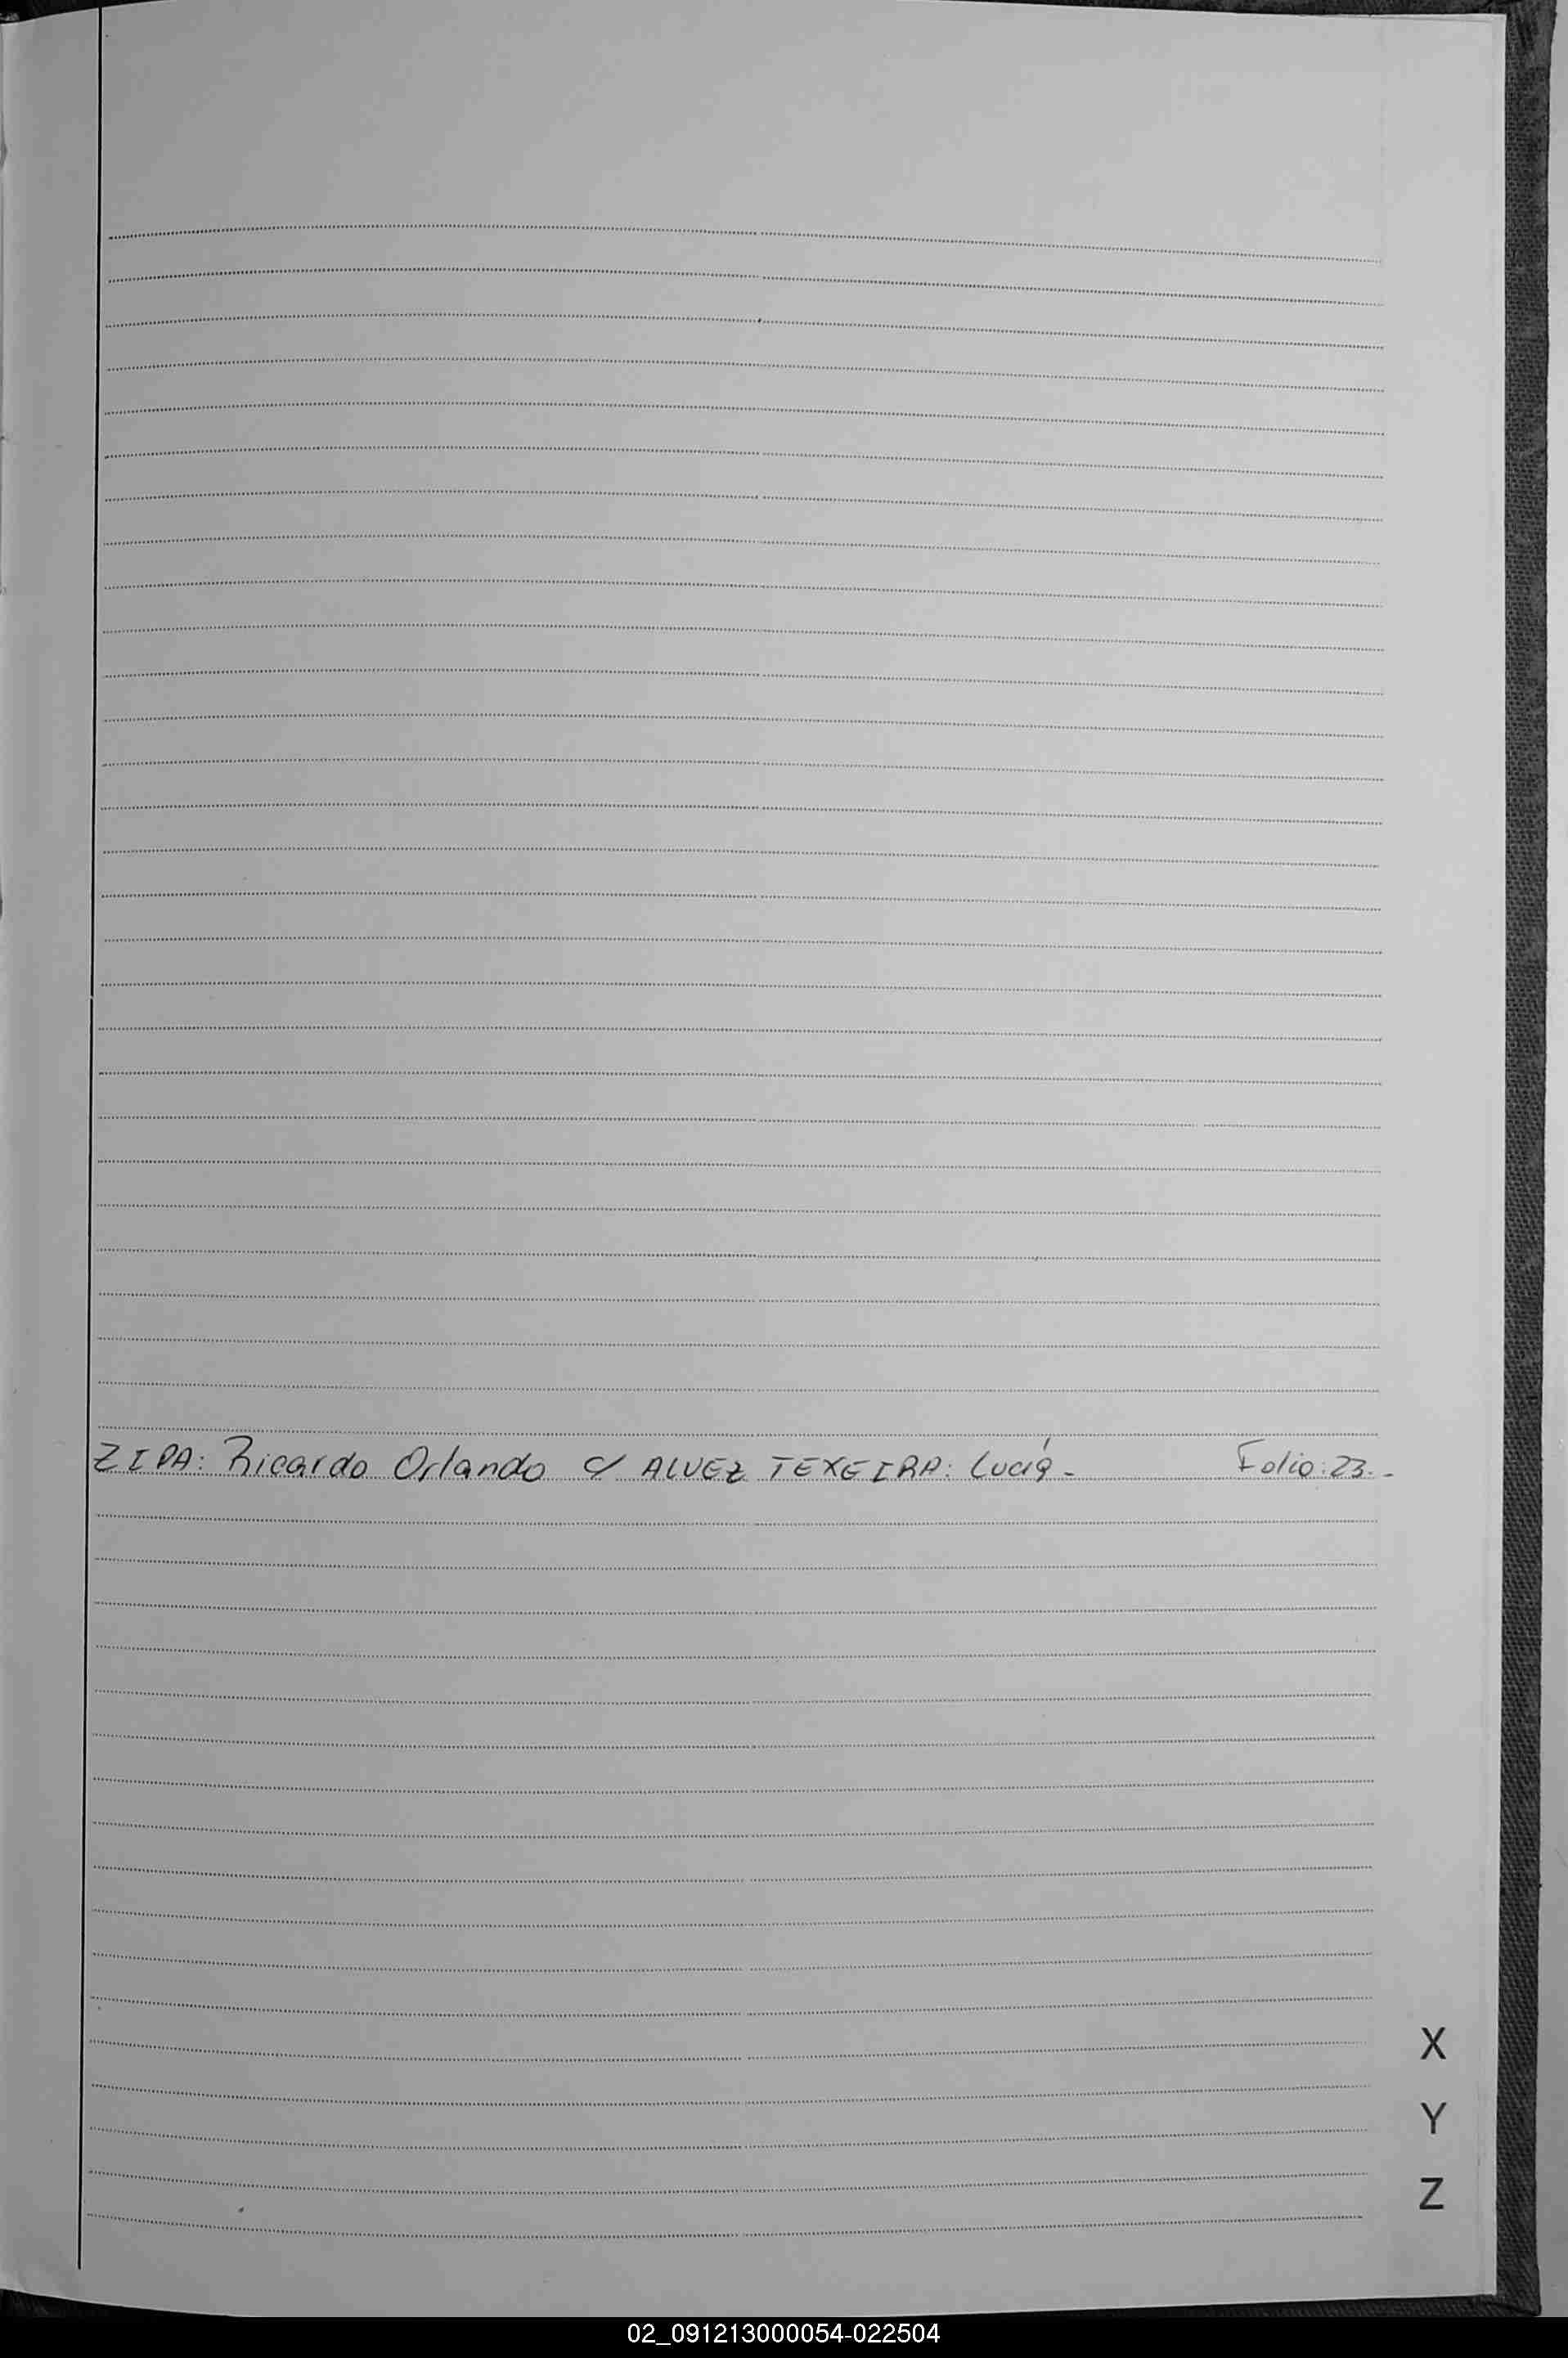 ZIPA: Ricardo Orlando c/ ALVEZ TEXEIRA: Lucía.- Folio: 23.-
X
Y
Z
02_091213000054-022504